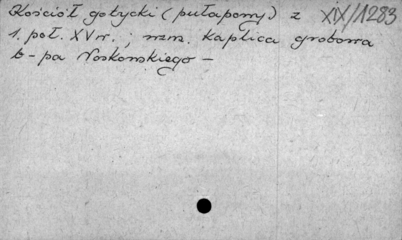 Kościół gotycki (pułapowy) z XIX/1283
1. poł. XV w. ; wzm. kaplica grobowa
b-pa Noskowskiego –